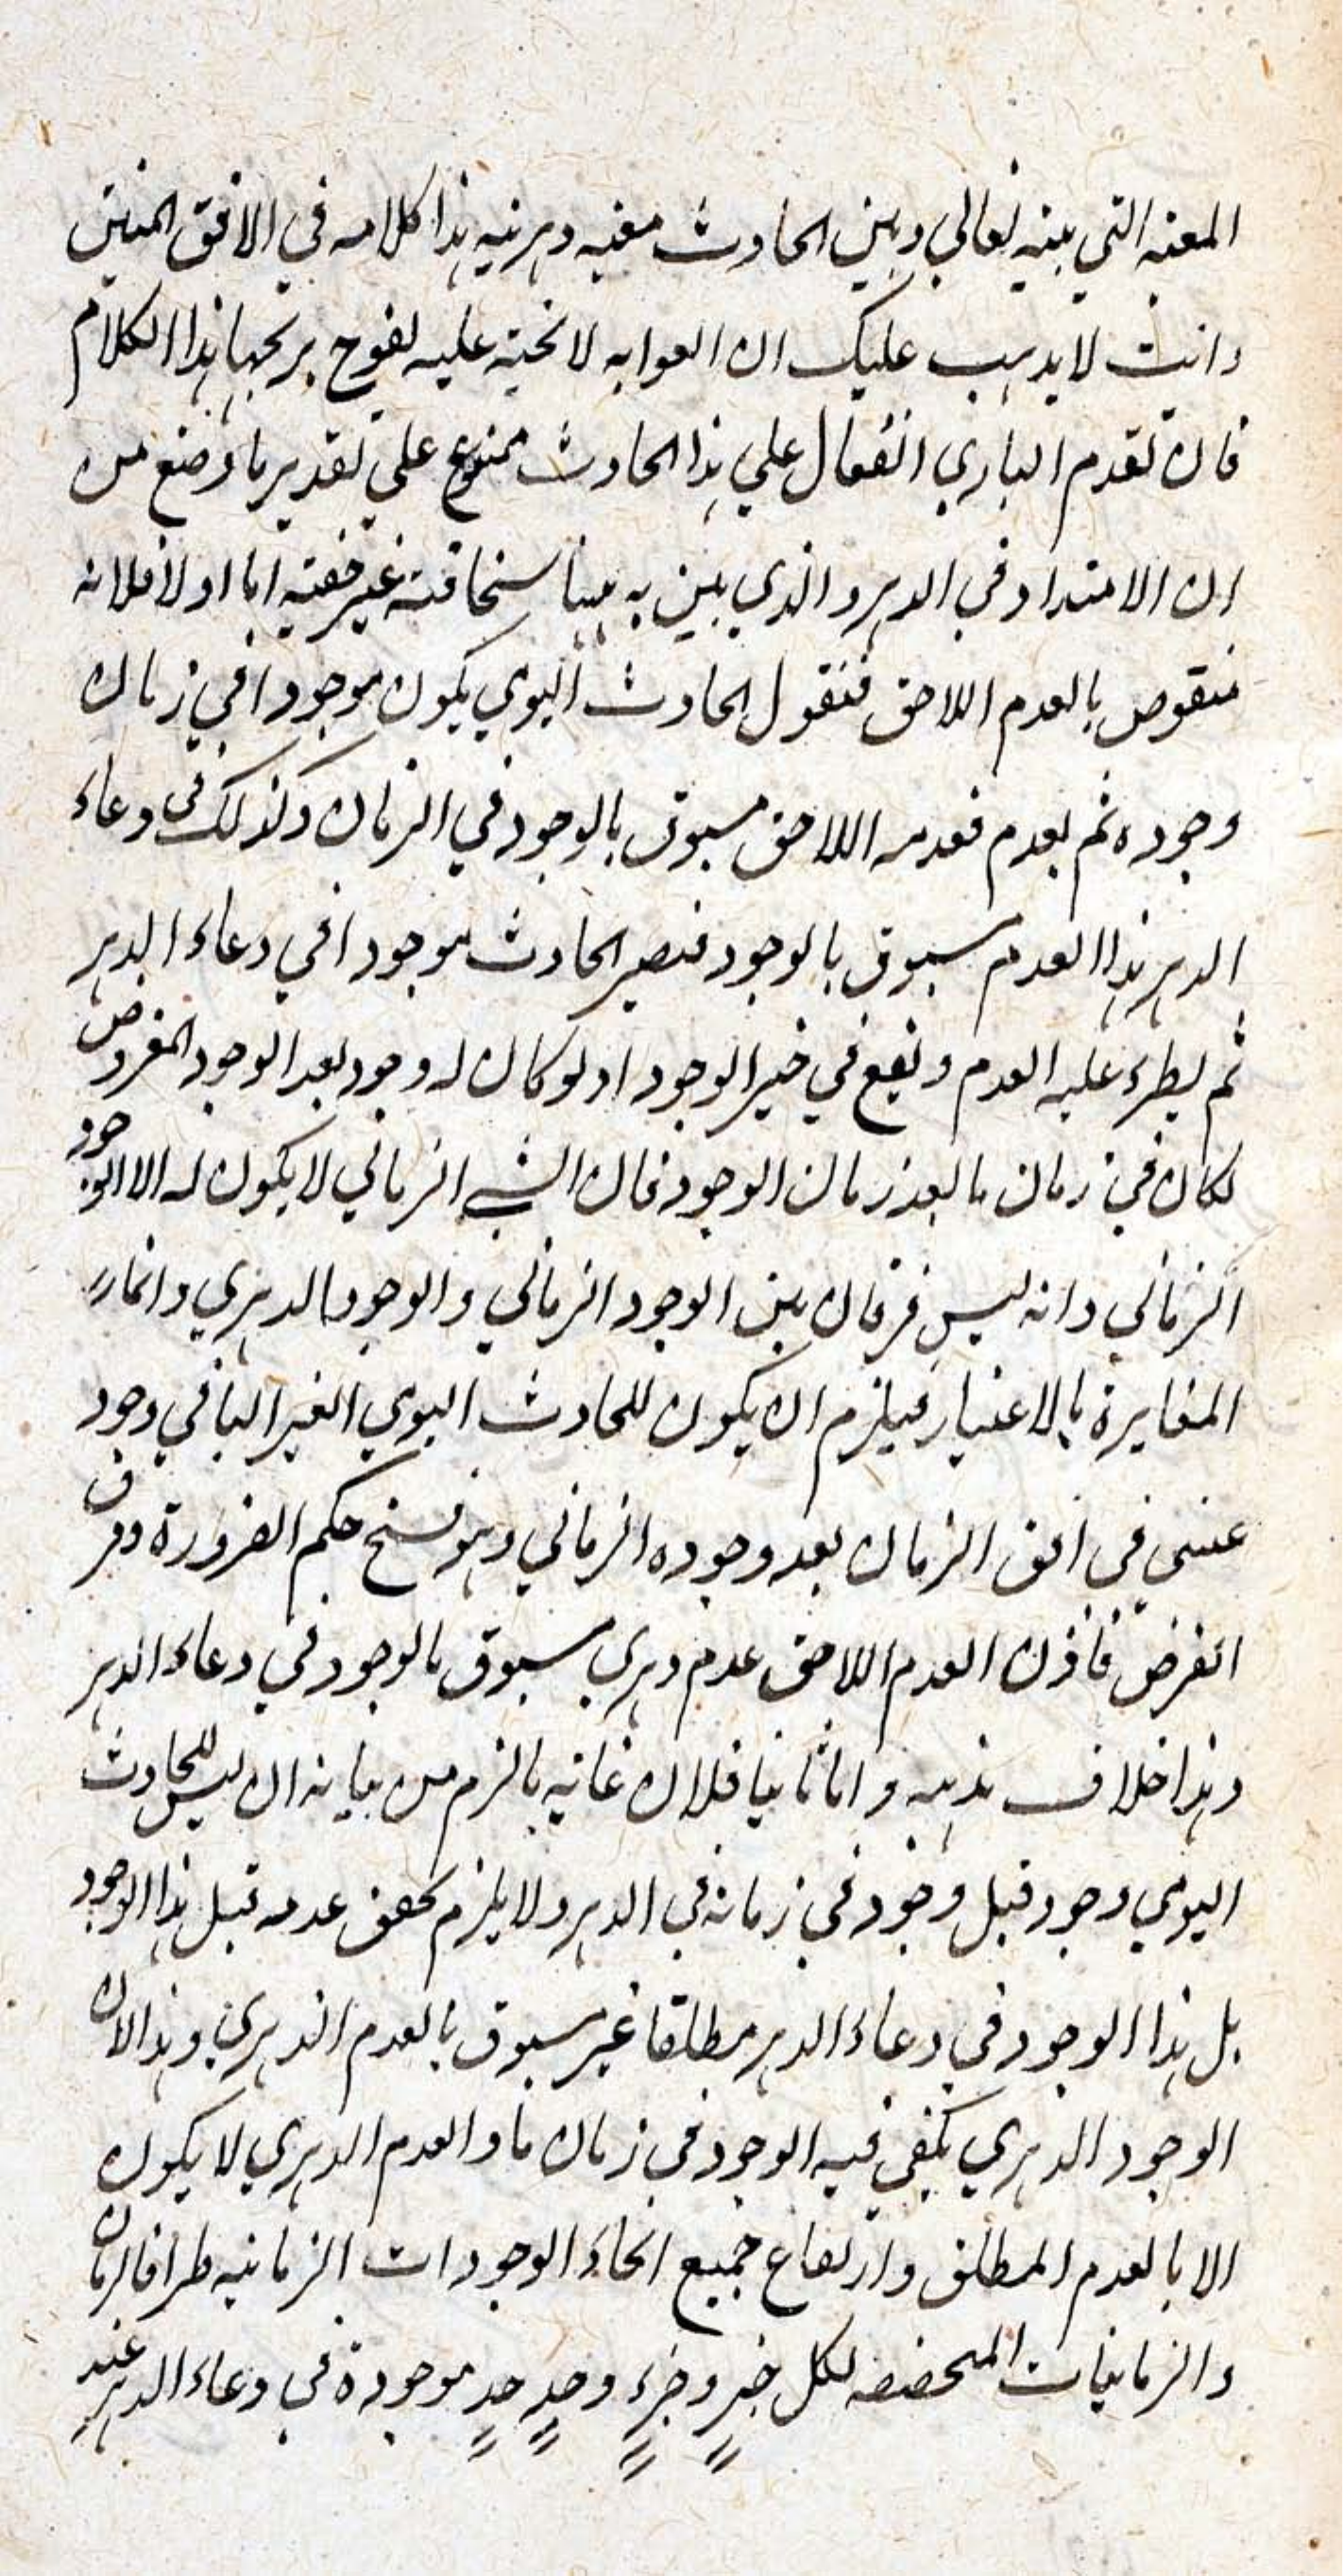 المعية التي بينه تعالي وبين الحادث معية دهرية هذا كلامه في الافق المبين
وانت لا يذهب عليك ان العوابه لا تحية عليه لفوح بر تجها هذا الكلام
فان تقدم الباري الفعال علي هذا الحادث ممنوع علي تقدير ما وضع من
ان الامتداد في الدهر والذي بين به بيننا سخافته غير خفية اما اولا فلانه
منقوض بالعدم اللاحق فنقول الحادث اليومي يكون موجودا في زمان
وجوده ثم يعدم فعدمه اللاحق مسبوق بالوجود في الزمان وكذلك في وعاء
الدهر هذا العدم مسبوق بالوجود فيصير الحادث موجودا في وعاء الدهر
ثم يطرء عليه العدم ويقع في حيز الوجود اذ لو كان له وجود بعد الوجود المفروض
لكان في زمان ما بعد زمان الوجود فان الشيء الزماني لا يكون له الا الوجود
الزماني وانه ليس فرقان بين الوجود الزماني والوجود الدهري وانما
المغايرة بالاعتبار فيلزم ان يكون للحادث اليومي الغير الباقي وجود
عيني في افق الزمان بعد وجوده الزماني وهو فسخ حكم الضرورة وفرق
الفرض فاذن العدم اللاحق عدم دهري مسبوق بالوجود في وعاء الدهر
وهذا خلاف مذهبه واما ثانيا فلان غاية ما لزم من بيانه ان ليس للحادث
اليومي وجود قبل وجود في زمانه في الدهر ولا يلزم تحقق عدمه قبل هذا الوجود
بل هذا الوجود في وعاء الدهر مطلقا غير مسبوق بالعدم الدهري وهذا لان
الوجود الدهري يكفي فيه الوجود في زمان ما والعدم الدهري لا يكون
الا بالعدم المطلق وارتفاع جميع انحاء الوجودات الزمانية طرا فالزمان
والزمانيات المتخصصه لكل جزء وجزء وحد حد موجودة في وعاء الدهر عند